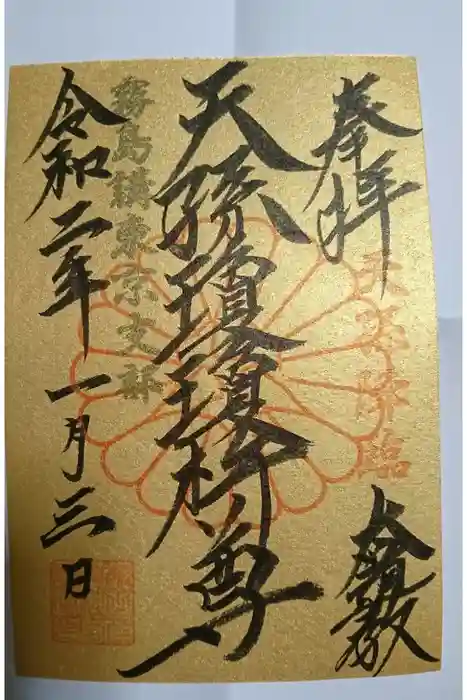 奉拝
天孫降臨
天孫瓊瓊杵尊
霧島講東京支部
令和二年一月三日